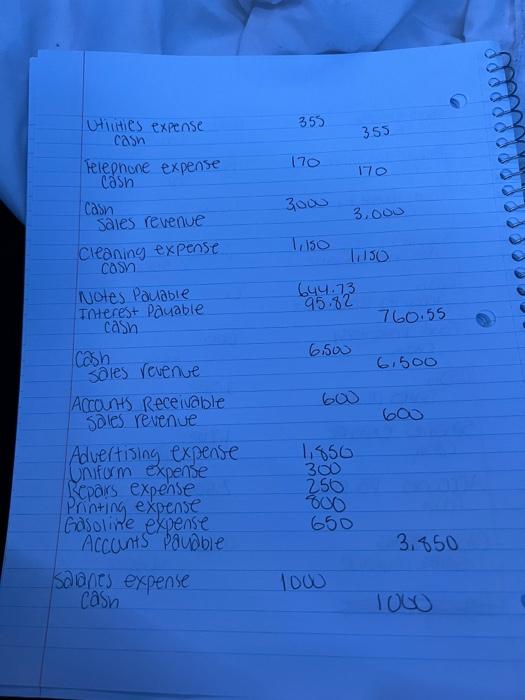 Utilities expense 355
cash 355
Telephone expense 170
Cash 170
Cash 3000
Sales revenue 3,000
Cleaning expense 1,150
cash 1,150
Notes Payable 644.73
Interest Payable 95.82
cash 760.55
Cash 6,500
Sales revenue 6,500
Accounts Receivable 600
Sales revenue 600
Advertising expense 1,850
Uniform expense 300
Repairs expense 250
Printing expense 800
Gasoline expense 650
Accounts Payable 3,850
Salaries expense 1000
Cash 1000